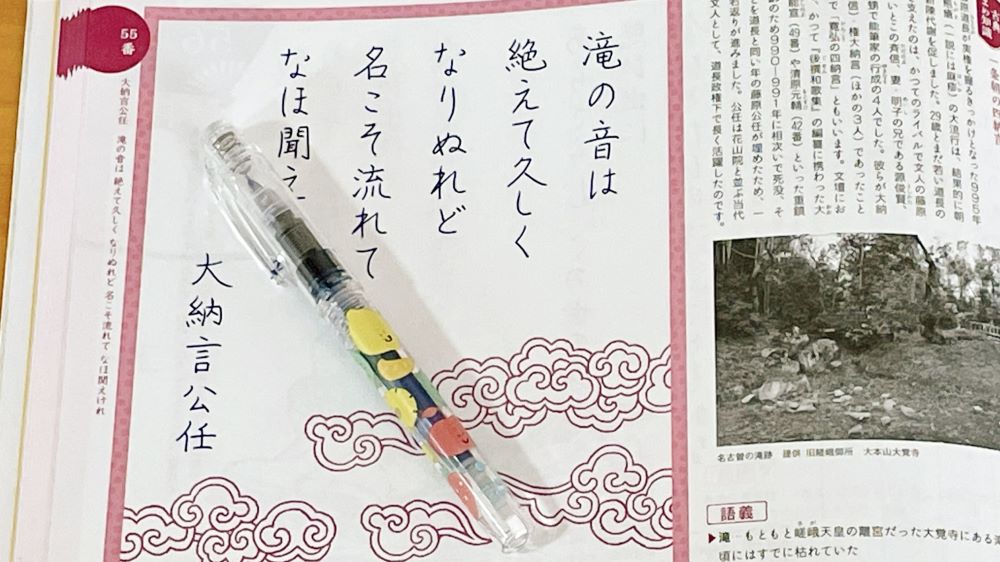 原道長が実権を握るきっかけとなった995年
(一説には麻疹)の大流行は、結果的に朝
新陳代謝を促しました。29歳とまだ若い道長の
支えたのは、かつてのライバルで文人の藤原
いとこの斉信、妻・明子の兄である源俊賢、
甥で能筆家の行成の4人でした。彼らが大納
信・権大納言(ほかの3人)であったこと
で「寛弘の四納言」ともいいます。文壇にお
、かつて『後撰和歌集』の編纂に携わった大
能宣(49番)や清原元輔(42番)といった重鎮
のため990〜991年に相次いで死没、そ
を道長と同い年の藤原公任が埋めたため、一
若返りが進みました。公任は花山院と並ぶ当代
文人として、道長政権下で長く活躍したのです。
名古曽の滝跡 提供 旧嵯峨御所 大本山大覚寺
語義
▶滝…もともと嵯峨天皇の離宮だった大覚寺にある滝
頃にはすでに枯れていた
滝の音は
絶えて久しく
なりぬれど
名こそ流れて
なほ聞え
大納言公任
55番
大納言公任 滝の音は 絶えて久しく なりぬれど 名こそ流れて なほ聞えけれ